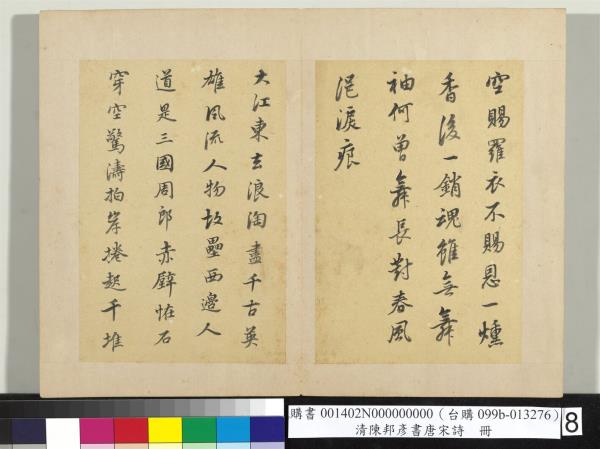 空賜羅衣不賜恩一燻
香後一銷魂雖無舞
袖何曾舞長對春風
浥淚痕
大江東去浪淘盡千古英
雄風流人物故壘西邊人
道是三國周郎赤壁怪石
穿空驚濤拍岸捲起千堆
購書 001402N000000000（台購 099b-013276）
清陳邦彥書唐宋詩 冊
8